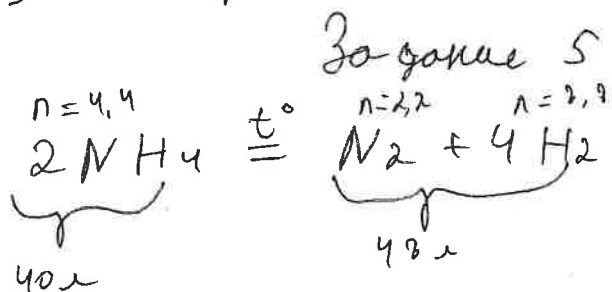 Задание 5
n=4,4 n=2,2 n=8,8
2NH4 t°= N2 + 4H2
40л 48л